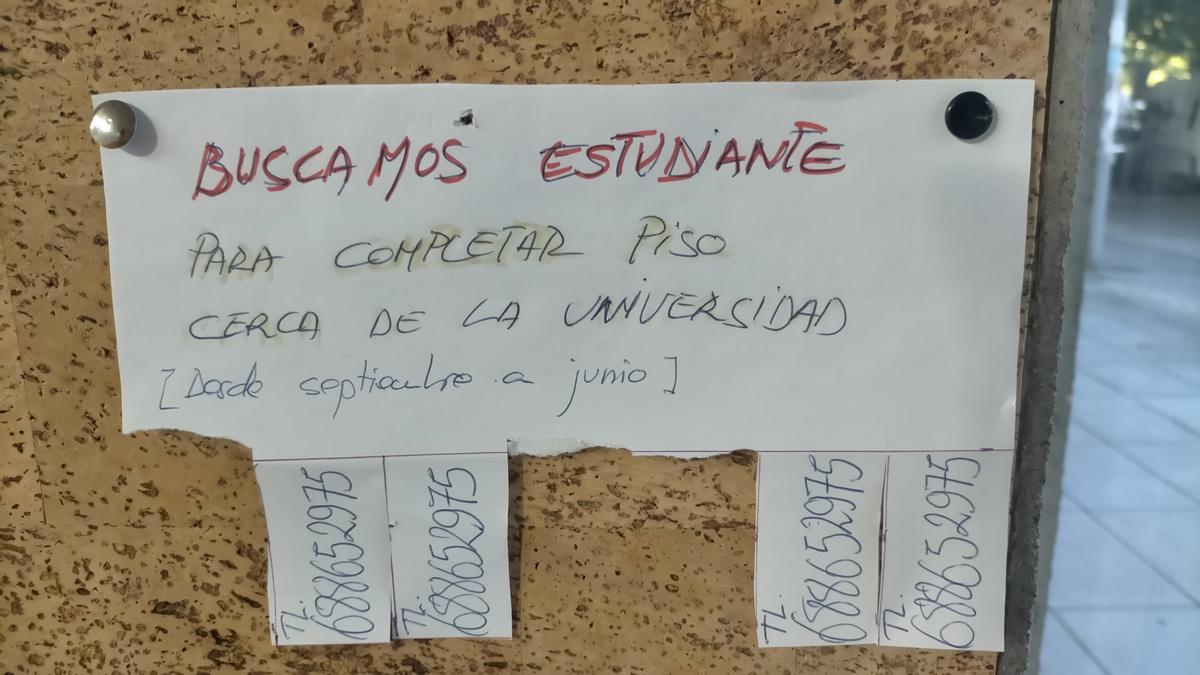 BUSCAMOS ESTUDIANTE
PARA COMPLETAR PISO
CERCA DE LA UNIVERSIDAD
[Desde septiembre a junio]
TL. 688652975
TL. 688652975
TL. 688652975
TL. 688652975